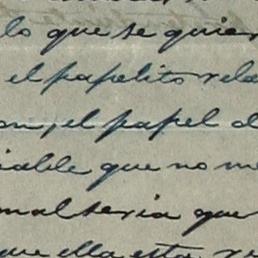 lo que se quier
el papelito rela
on, el papel d
iable que no me
mal seria que
que ella esta